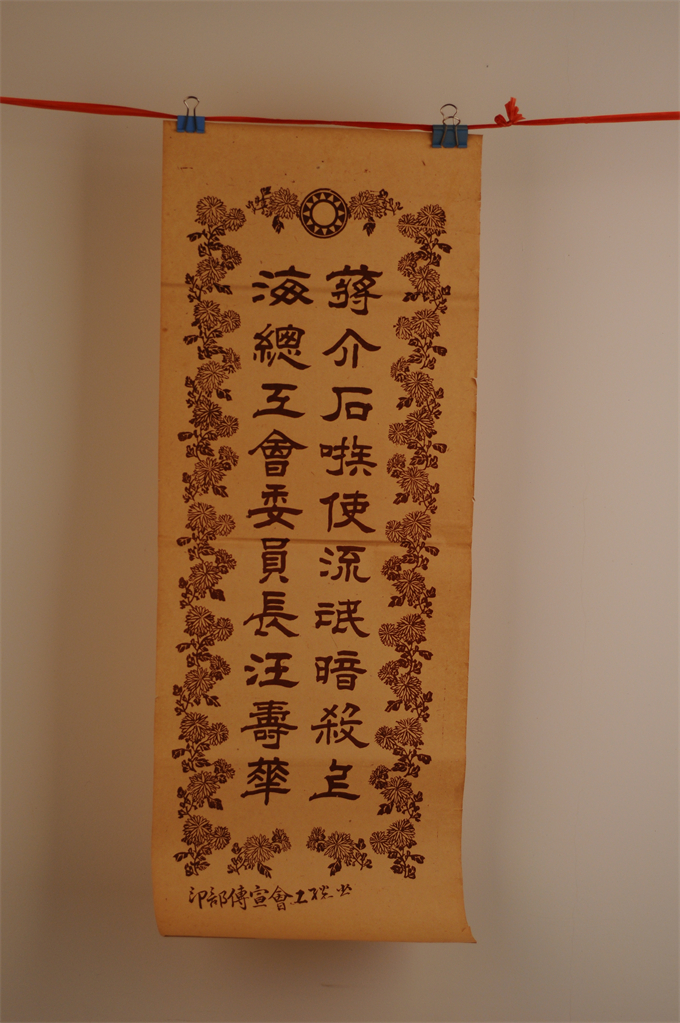 蔣介石嗾使流氓暗殺上
海總工會委員長汪壽華
上總工會宣傳部印